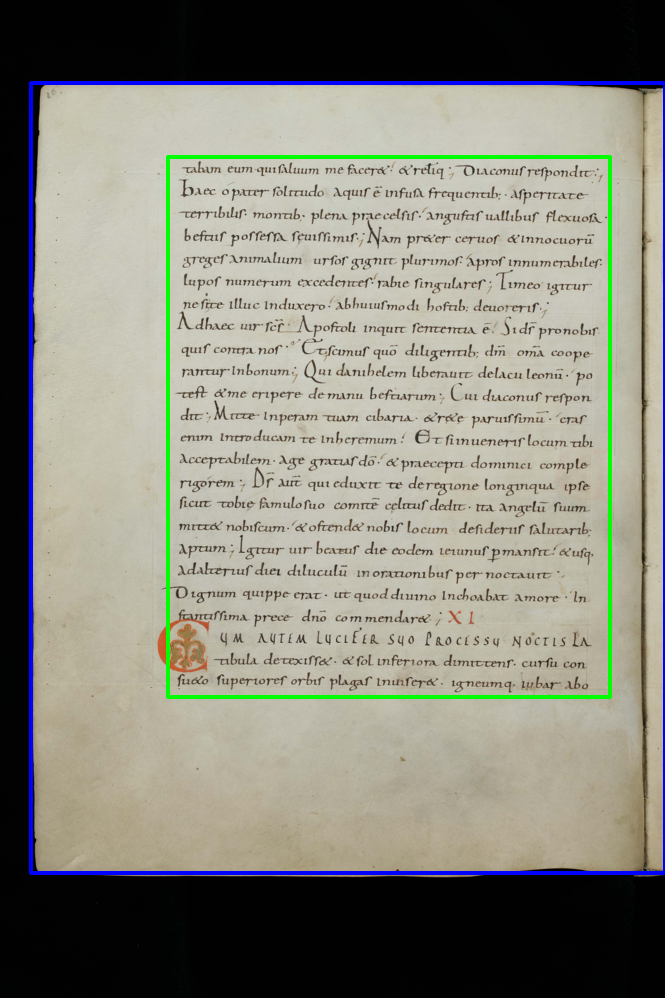 tabam eum qui saluum me faceret· & reliq; Diaconus respondit;
Haec o pater solitudo aquis ē infusa frequentib; asperitate
terribilis· montib; plena praecelsis· angustis uallibus flexuosa·
bestiis possessa seuissimis; Nam preter ceruos & innocuorū
greges animalium ursos gignit plurimos· apros innumerabiles·
lupos numerum excedentes· rabie singulares; Timeo igitur
ne si te illuc induxero· ab huiusmodi hostib; deuoreris;
Ad haec uir scs· Apostoli inquit sententia ē· Si ds pro nobis
quis contra nos· Et scimus quō diligentib; dm̄ oma coope
rantur in bonum; Qui danihelem liberauit de lacu leonū· po
test & me eripere de manu bestiarum; Cui diaconus respon
dit; Mitte in peram tuam cibaria· & rete paruissimū· cras
enim introducam te in heremum· Et si inueneris locum tibi
acceptabilem· age gratias dō· & praecepti dominici comple
rigorem; Ds aut̄ qui eduxit te de regione longinqua ipse
sicut tobie famulo suo comitē celitus dedit· ita angelū suum
mittet nobiscum· & ostendet nobis locum desideriis salutarib;
aptum; Igitur uir beatus die eodem ieiunus ꝑmansit· & usq·
ad alterius diei diluculū in orationibus pernoctauit·
Dignum quippe erat· ut quod diuino inchoabat amore· in
stantissima prece dno commendaret; XI
CUM AUTEM LUCIFER SUO PROCESSU NOCTIS LA
tibula detexisset· & sol inferiora dimittens· cursu con
sueto superiores orbis plagas inuiseret· igneumq· iubar abo